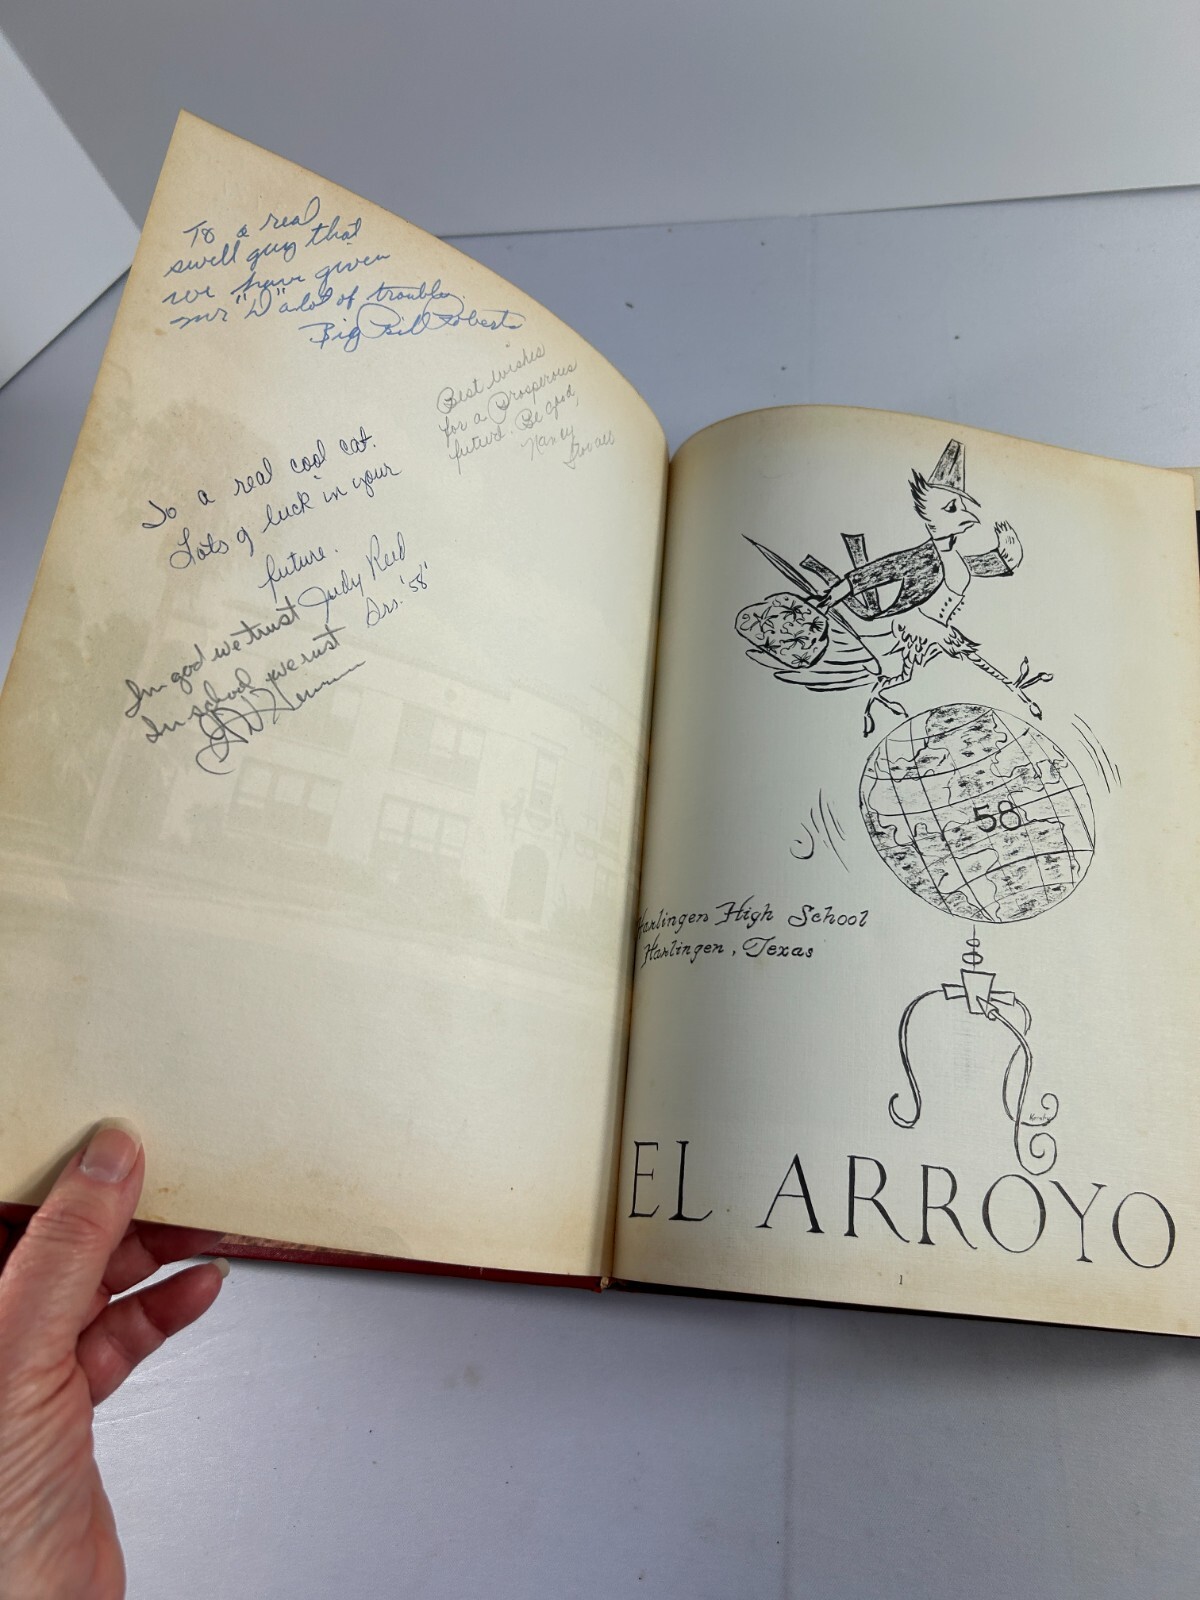 To a real
swell guy that
we have given
mr "D" a lot of trouble.
Big Bill Roberts
Best wishes
for a Prosperous
future. Be good,
Nancy
To a real cool cat.
Lots of luck in your
future.
Judy Reed
Srs. '58'
In god we trust
In school we rust
58
Harlingen High School
Harlingen, Texas
EL ARROYO
1